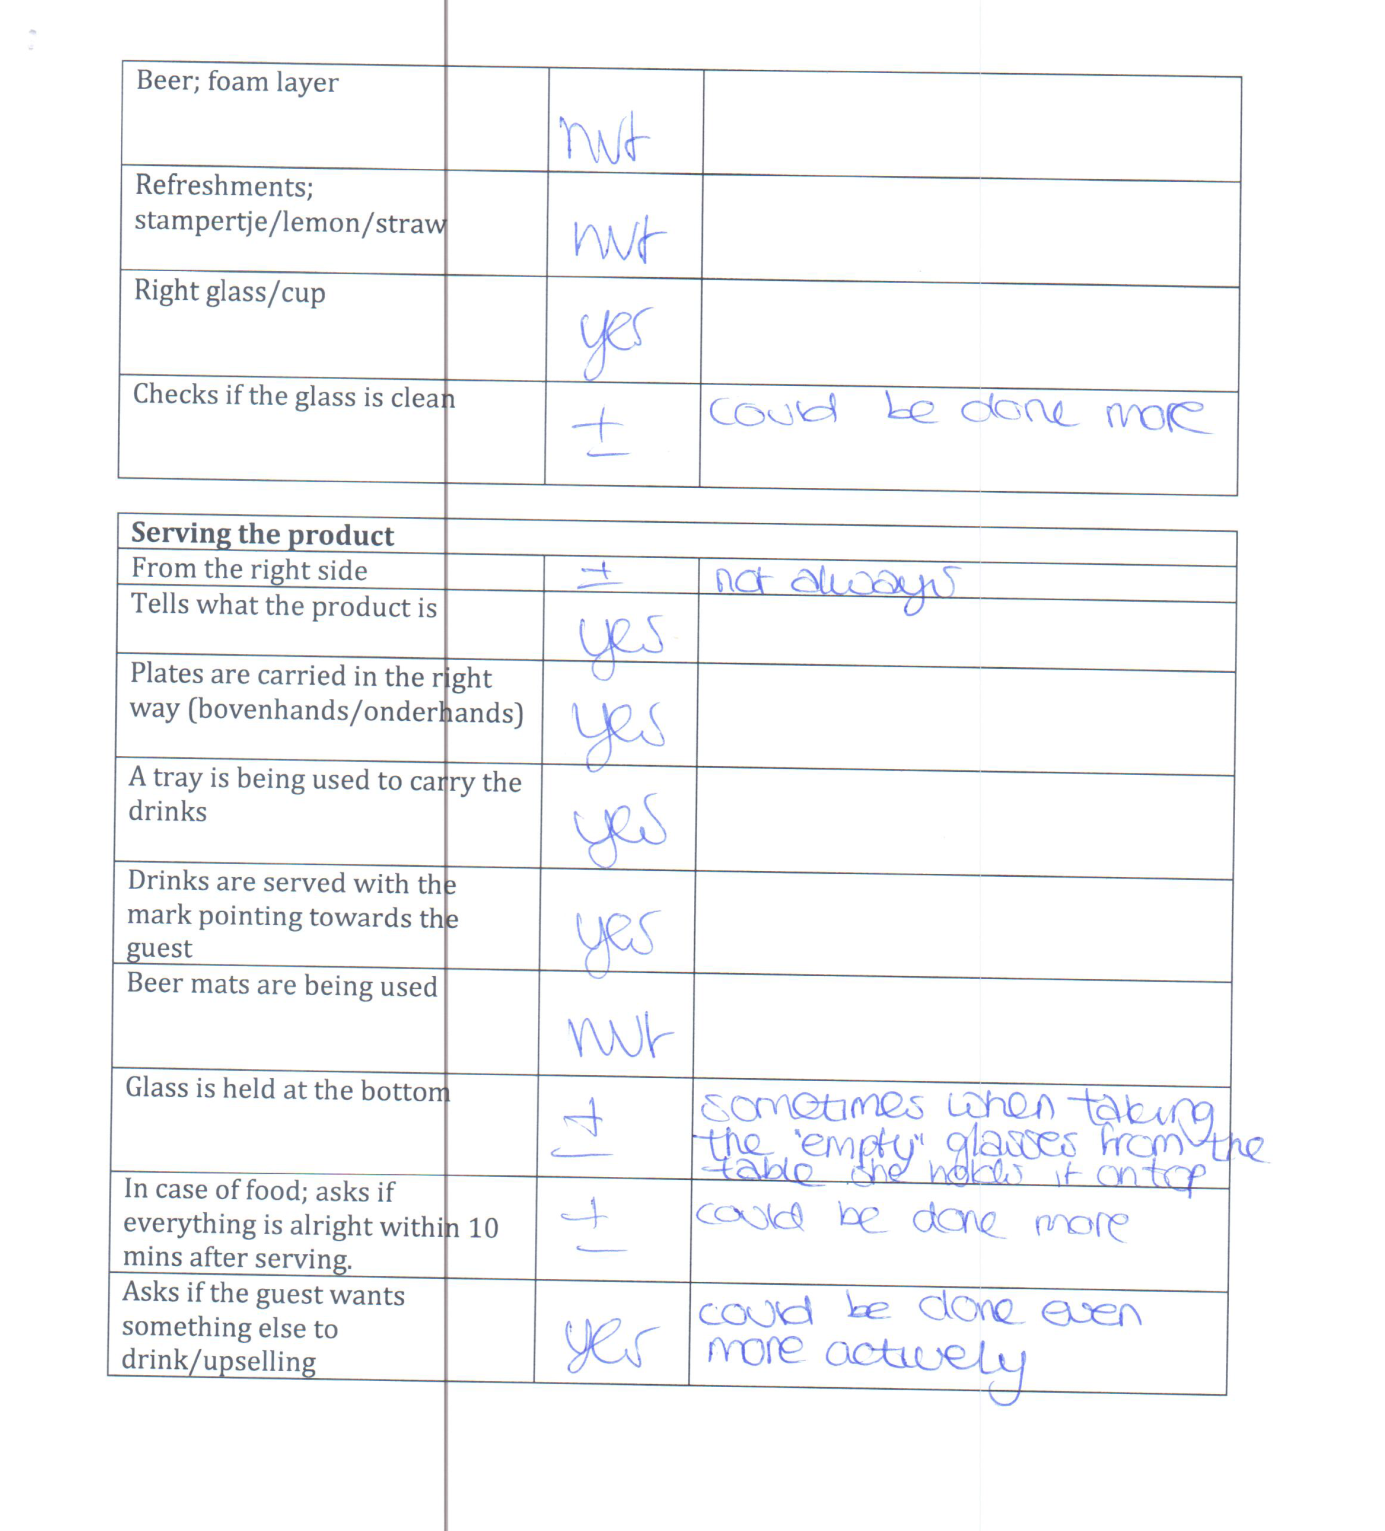 Beer; foam layer
nvt
Refreshments;
stampertje/lemon/straw
nvt
Right glass/cup
yes
Checks if the glass is clean
±
could be done more
Serving the product
From the right side
±
not always
Tells what the product is
yes
Plates are carried in the right
way (bovenhands/onderhands)
yes
A tray is being used to carry the
drinks
yes
Drinks are served with the
mark pointing towards the
guest
yes
Beer mats are being used
nvt
Glass is held at the bottom
±
sometimes when taking
the "empty" glasses from the
table she holds it on top
In case of food; asks if
everything is alright within 10
mins after serving.
±
could be done more
Asks if the guest wants
something else to
drink/upselling
yes
could be done even
more actively